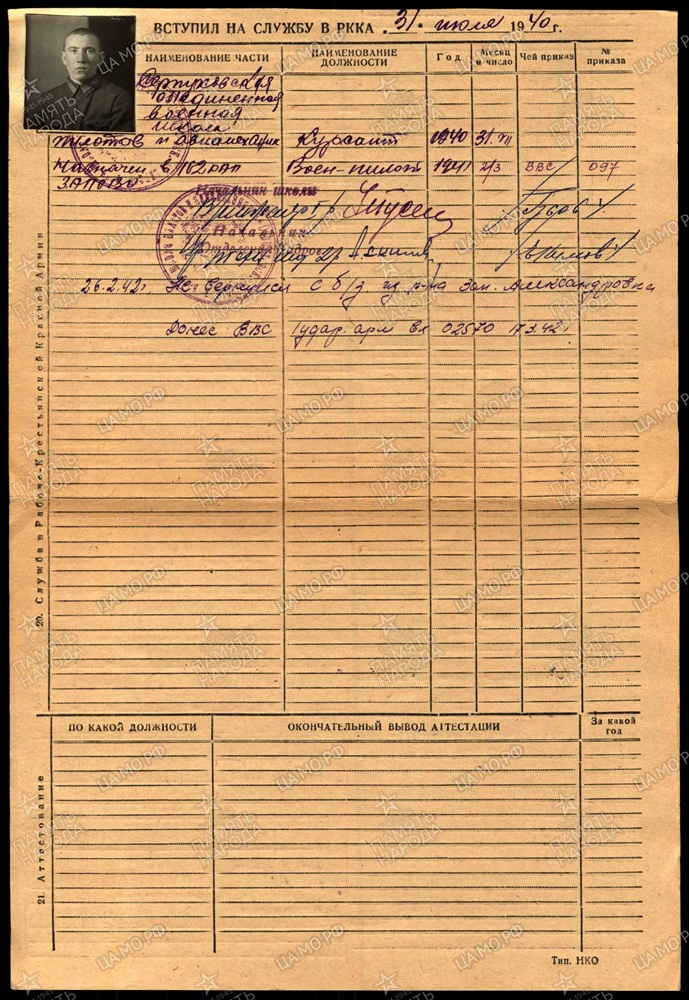 ВСТУПИЛ НА СЛУЖБУ В РККА 31 июля 1940 г.
НАИМЕНОВАНИЕ ЧАСТИ
НАИМЕНОВАНИЕ ДОЛЖНОСТИ
Год
Месяц и число
Чей приказ
№ приказа
Серпуховская
объединенная
военная
школа
пилотов и авиамеханик Курсант 1940 31.VII
Назначен в Военн-пилот 1941 2/3 ВВС 097
ЗАПОВО
Начальник школы
Начальник
26.2.42г. Не вернулся с б/з из р-на Зап. Александровка
Донес ВВС 1 удар. арм вх 02570 17.3.42г
20. Служба в Рабоче-Крестьянской Красной Армии
ПО КАКОЙ ДОЛЖНОСТИ
ОКОНЧАТЕЛЬНЫЙ ВЫВОД АТТЕСТАЦИИ
За какой год
21. Аттестование
Тип. НКО
ПАМЯТЬ НАРОДА
ЦАМО.РФ